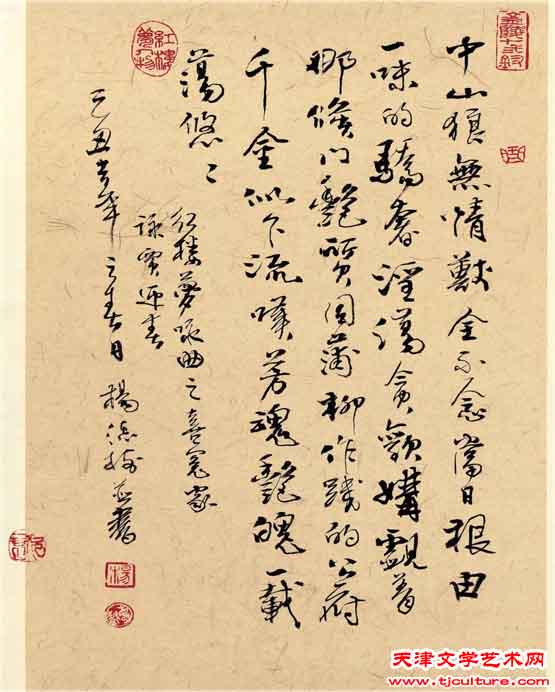 金陵十二釵
中山狼無情獸全不念當日根由
一味的驕奢淫蕩貪歡媾覷着
那侯门艷質同蒲柳作踐的公府
千金似下流嘆芳魂艷魄一載
蕩悠〻
紅樓夢人物
紅樓夢詠曲之喜冤家
詠賈迎春
己丑年之春日 楊書
楊
天津文学艺术网
www.tjculture.com